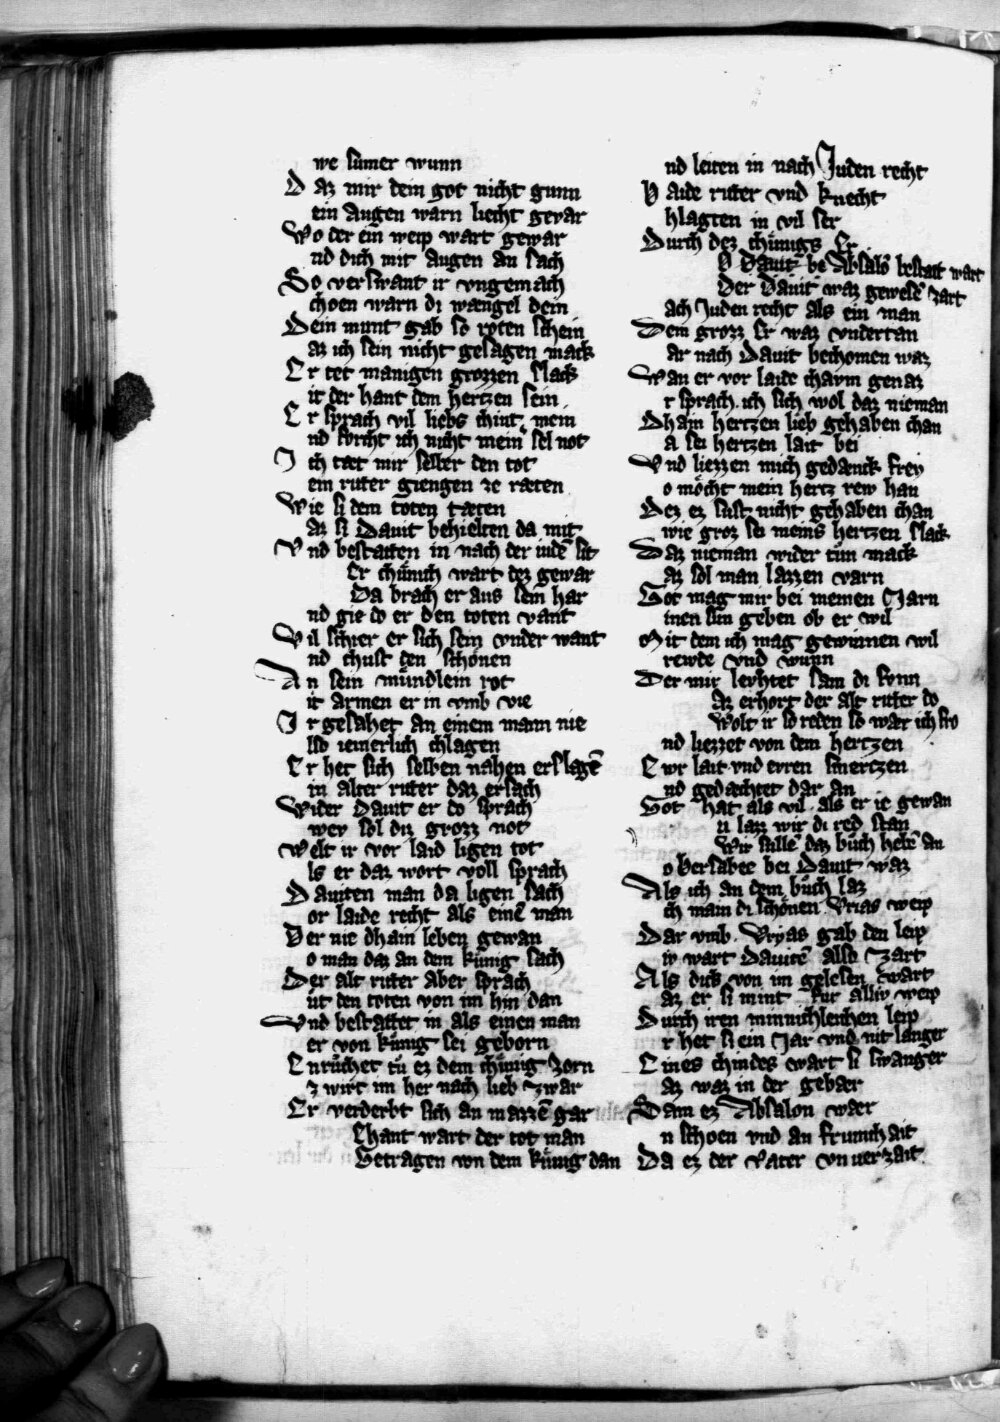 we sumer wunn
Daz mir dein got nicht gunn
ein augen warn liecht gevar
Wo der ein weip wart gewar
nd dich mit augen an sach
So verswant ir vngemach
choen warn di wængel dein
Dein munt gab so roten schein
az ich sein nicht gesagen mack
Er tet manigen grozzen slack
it der hant dem hertzen sein
Er sprach vil liebs chint mein
nd forcht ich nicht meinˢ sel not
Ich tæt mir selber den tot
ein ritter giengen ze ræten
Wie si dem toten tæten
az si Dauit behielten da mit
Vnd bestatten in nach der iudē sit
Er chünich wart dez gewar
Da brach er aus sein har
nd gie do er den toten vant
Vil schier er sich sein vnder want
nd chust den schönen
An sein mündlein rot
it armen er in vmb vie
Ir gesahet an einem mann nie
lso iemerlich chlagen
Er het sich selben nahen erslagē
in alter ritter daz ersach
Wider Dauit er do sprach
wey sol diz grozz not
Welt ir vor laid ligen tot
ls er daz wort voll sprach
Dauiten man da ligen sach
or laide recht als einē man
Der nie dhain leben gewan
o man daz an dem künig sach
Der alt ritter aber sprach
üt den toten von im hin dan
Vnd bestattet in als einen man
er von künig sei geborn
Enrüchet tü ez dem chünig zorn
z wirt im her nach lieb zwar
Er verderbt sich an mazzē gar
Ehant wart der tot man
Getragen von dem künig dan
nd leiten in nach Juden recht
Baide ritter vnd knecht
hlagten in vil ser
Durch dez chünigs Er
D Dauit be Absalō bestatt wart
Der Dauit waz gewesē zart
ach Juden recht als ein man
Dem grozz Er waz vndertan
ar nach Dauit bechomen waz
Wan er vor laide chawm genaz
r sprach ich sich wol daz nieman
Dhain hertzen lieb gehaben chan
a sei hertzen lait bei
Vnd liezzen mich gedænck frey
o möcht mein hertz rew han
Dez ez sust nicht gehaben chan
wie groz sei meins hertzen slack
Daz nieman wider tün mack
az sol man lazzen varn
Got mag mir bei meinen Jarn
inen sun geben ob er wil
Mit dem ich mag gewinnen vil
rewde vnd wünn
Der mir levhtet sam di synn
az erhort der alt ritter do
Wolt ir so reden so wær ich fro
nd liezzet von dem hertzen
Ewr lait vnd ewren smertzen
nd gedæchtet dar an
Got hat als vil als er ie gewan
n lazz wir di red stan
Wir süllē daz büch hebē an
o bersabee bei Dauit waz
Als ich an dem büch laz
ch main di schönen Vrias weip
Dar vmb Vryas gab den leip
iv wart Dauitē also zart
Als dick von im gelesen wart
az er si mint für alliv weip
Durch iren minnichleichen leip
r het si ein Jar vnd nit langer
Eines chindes wart si swanger
az waz in der gebær
Sam ez Absalon wær
n schoen vnd an frumchait
Da ez der vater vnuerzait